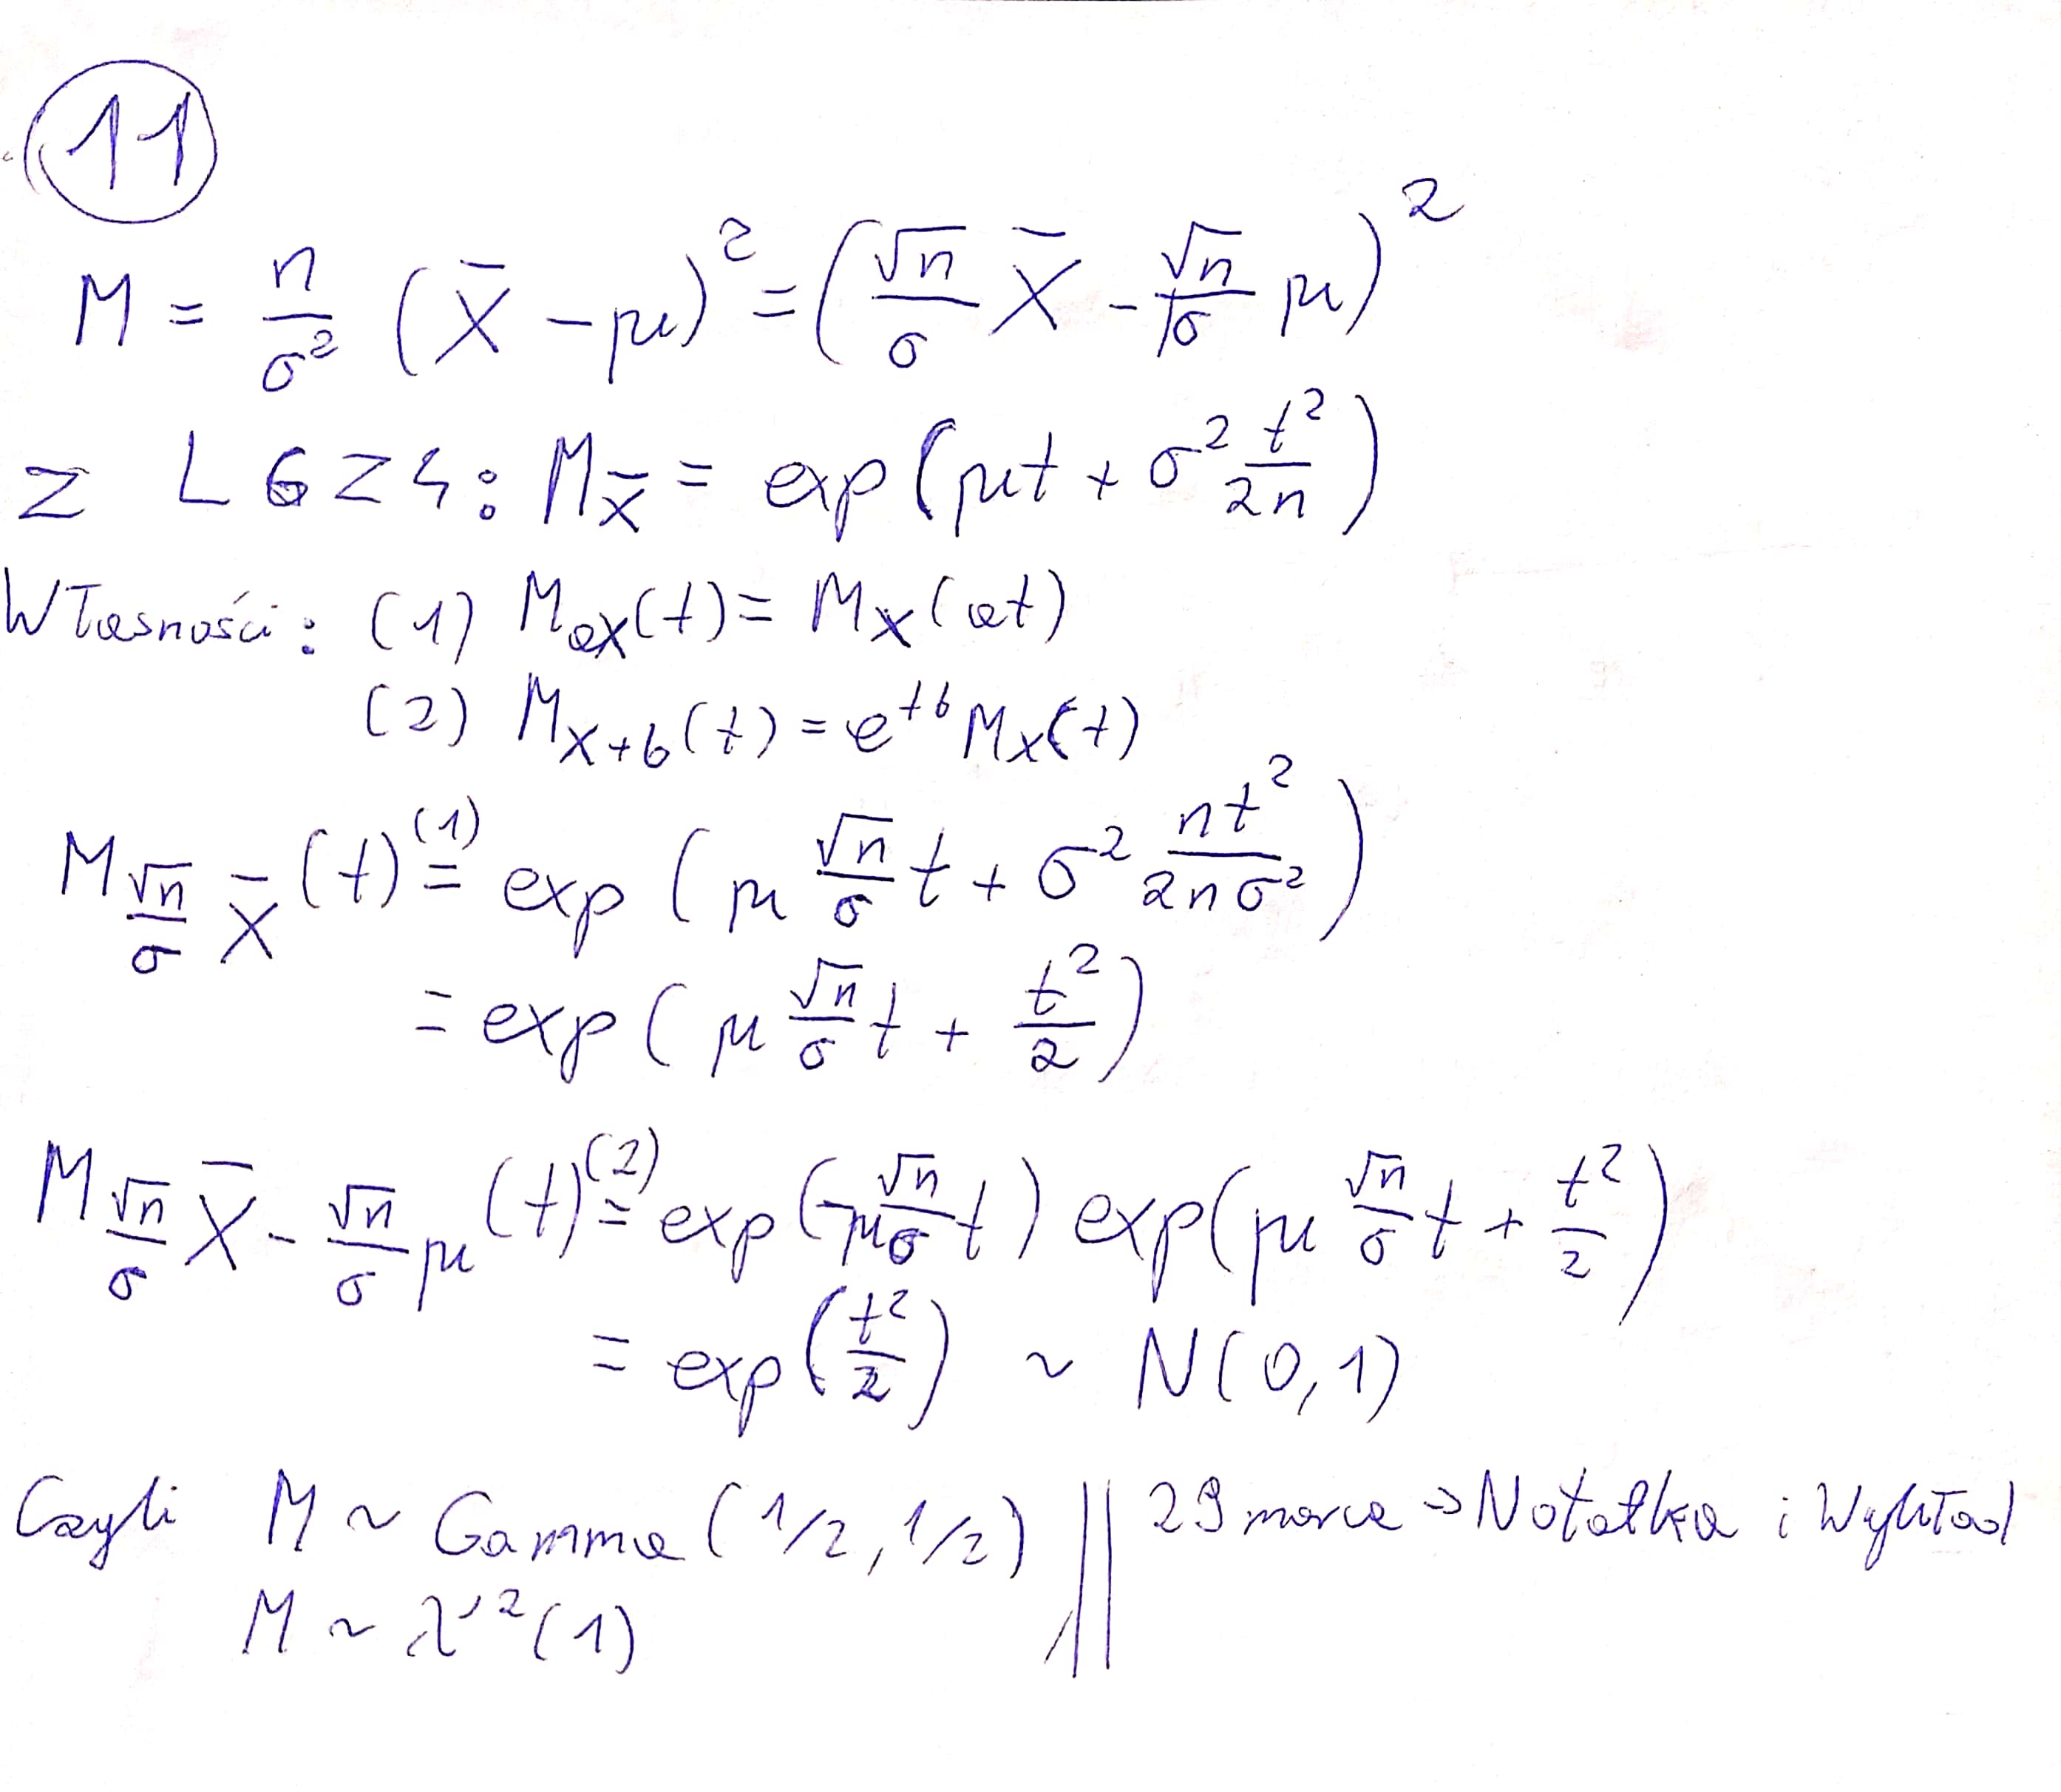 11
M = n/σ² (X̄ - μ)² = (√n/σ X̄ - √n/σ μ)²
z L6Z4: M_X̄ = exp(μt + σ² t²/2n)
Własności: (1) M_aX(t) = M_X(at)
(2) M_X+b(t) = e^tb M_X(t)
M_√n/σ X̄ (t) =^(1) exp(μ √n/σ t + σ² nt²/2nσ²)
= exp(μ √n/σ t + t²/2)
M_√n/σ X̄ - √n/σ μ (t) =^(2) exp(-μ √n/σ t) exp(μ √n/σ t + t²/2)
= exp(t²/2) ~ N(0,1)
Czyli M ~ Gamma(1/2, 1/2) || 29 marca → Notatka i Wykład
M ~ χ²(1)